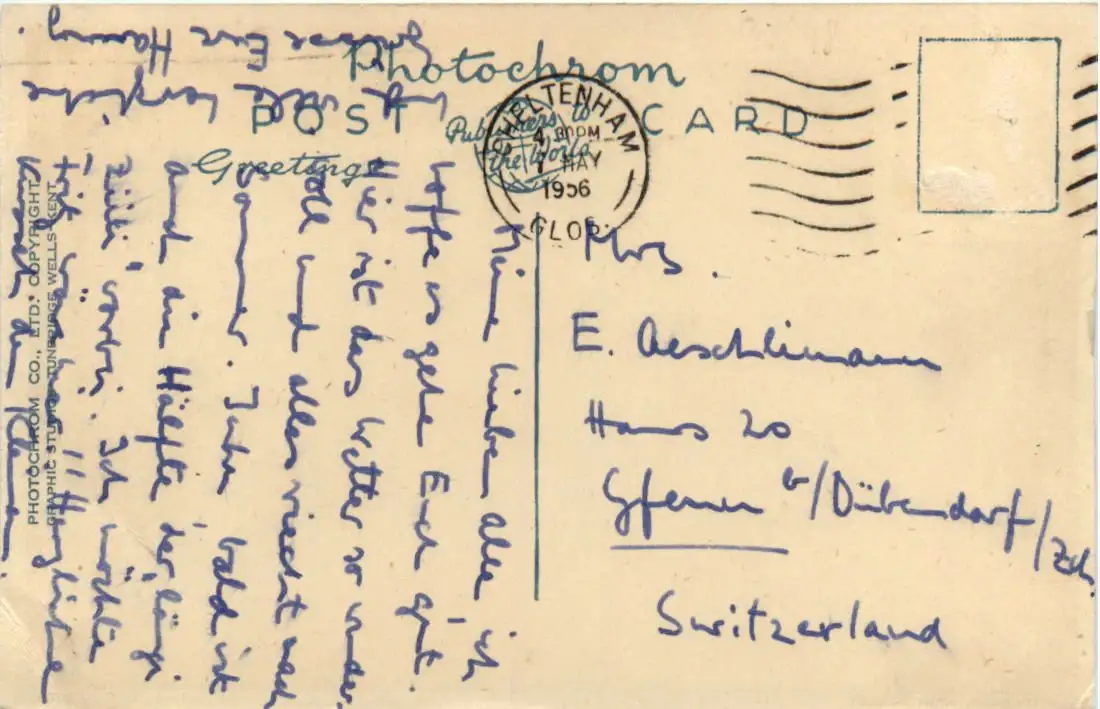 Photochrom
POST CARD
Publishers to
the World
Greetings
CHELTENHAM
4 30PM
1 MAY
1956
GLOS.
Meine lieben alle, ich
hoffe es gehe Euch gut.
Hier ist das Wetter so wunder
voll und alles riecht nach
Sommer. Juhu, bald ist
auch die Hälfte der
vorbei. Ich möchte
Herzliche
Küsse
viele herzliche
Grüsse Eure
Mrs.
E. Aeschlimann
Haus 20
Gfenn b/Dübendorf/Zch.
Switzerland
PHOTOCHROM CO., LTD. COPYRIGHT
GRAPHIC STUDIOS, TUNBRIDGE WELLS, KENT.